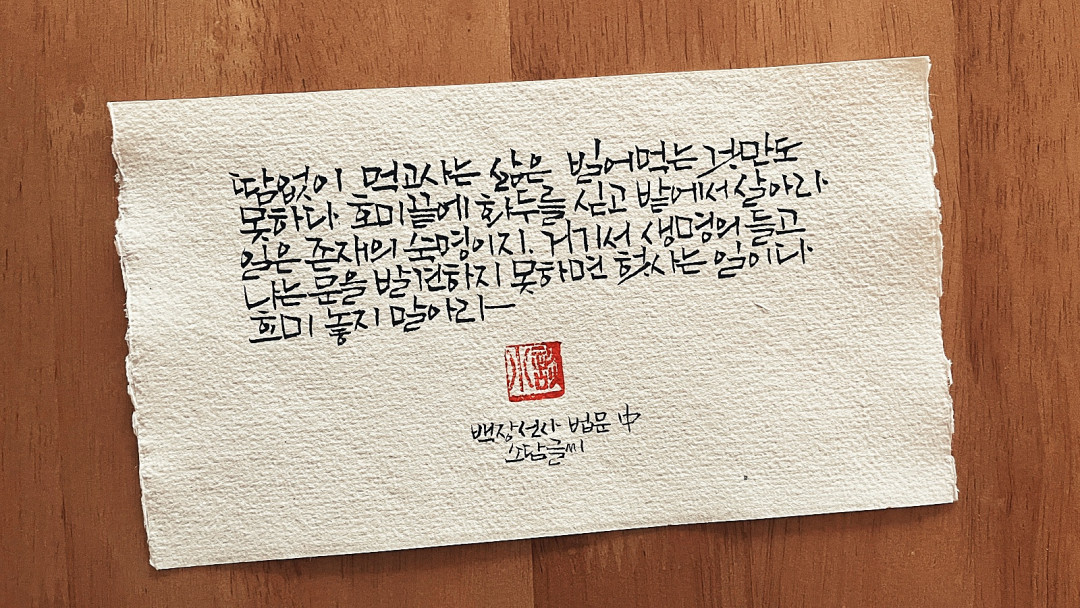 땀없이 먹고사는 삶은 빌어먹는 것만도
못하다. 호미끝에 화두를 싣고 밭에서 살아라
일은 존재의 숙명이지. 거기서 생명의 들고
나는 문을 발견하지 못하면 헛사는 일이다
호미 놓지 말아라
백장선사 법문 中
소담글씨